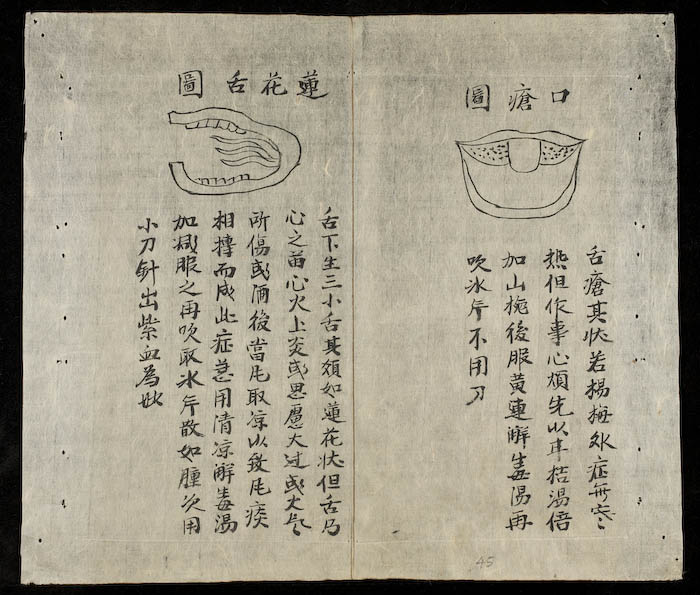 口瘡圖
舌瘡其状若楊梅外症無寒
热但作事心煩先以甘桔湯倍
加山梔後服黄連解毒湯再
吹冰片不用刀
蓮花舌圖
舌下生三小舌其如蓮花状但舌乃
心之苗心火上炎或思慮大过或大
所傷或酒後當風取凉以致風痰
相摶而成此症急用清凉解毒湯
加减服之再吹取冰片散如腫次用
小刀針出紫血為妙
45